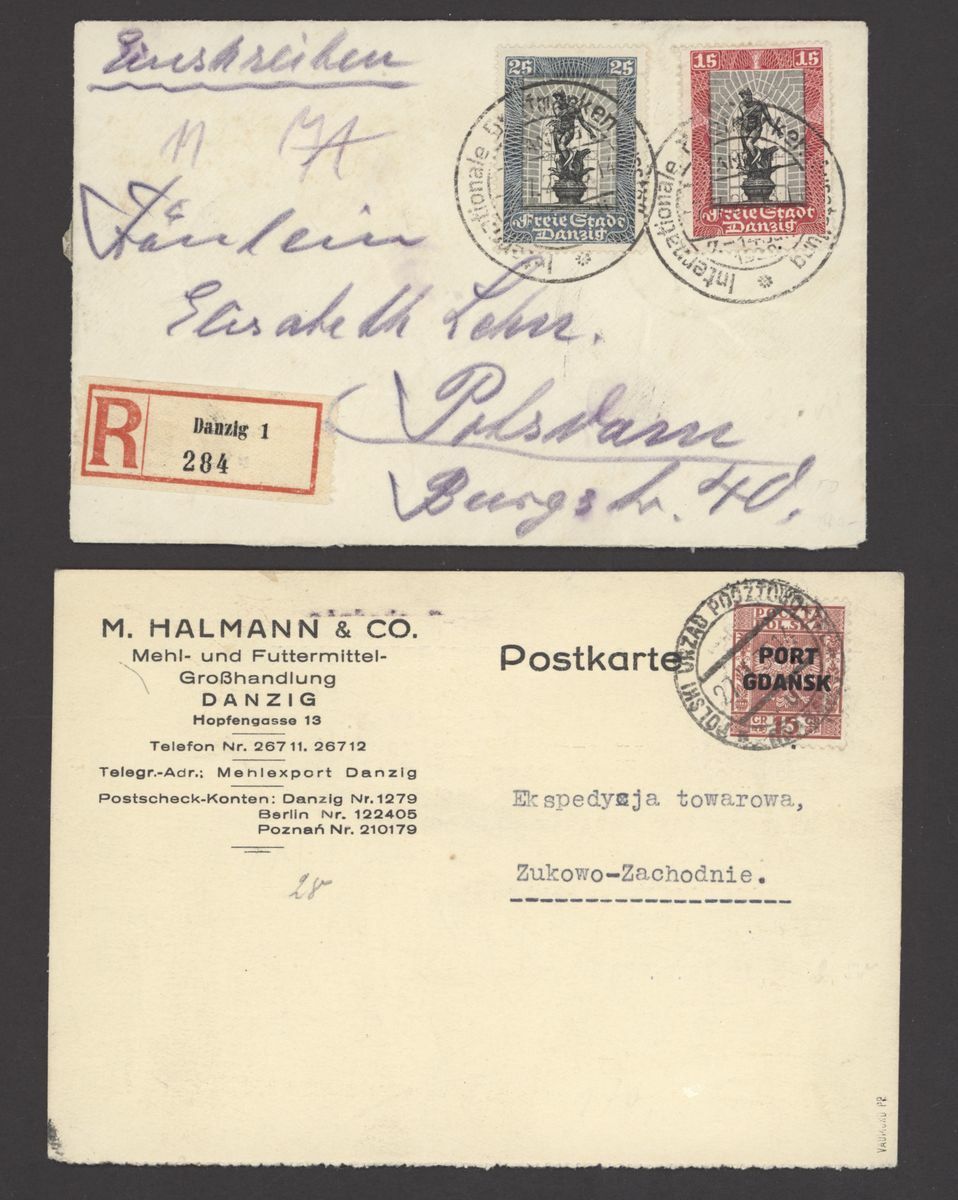 Einschreiben
25 25
Freie Stadt
Danzig
15 15
Freie Stadt
Danzig
Internationale
Internationale
Ausstellung
11 17A
Fräulein
Elisabeth Lehn.
Potsdam
Burgstr. 40.
R
Danzig 1
284
M. HALMANN & CO.
Mehl- und Futtermittel-
Großhandlung
DANZIG
Hopfengasse 13
Telefon Nr. 26711. 26712
Telegr.-Adr.: Mehlexport Danzig
Postscheck-Konten: Danzig Nr. 1279
Berlin Nr. 122405
Poznań Nr. 210179
28
Postkarte
POLSKI URZĄD POCZTOWO
POCZTA
POLSKA
PORT
GDAŃSK
GR 15
Ekspedycja towarowa,
Zukowo-Zachodnie.